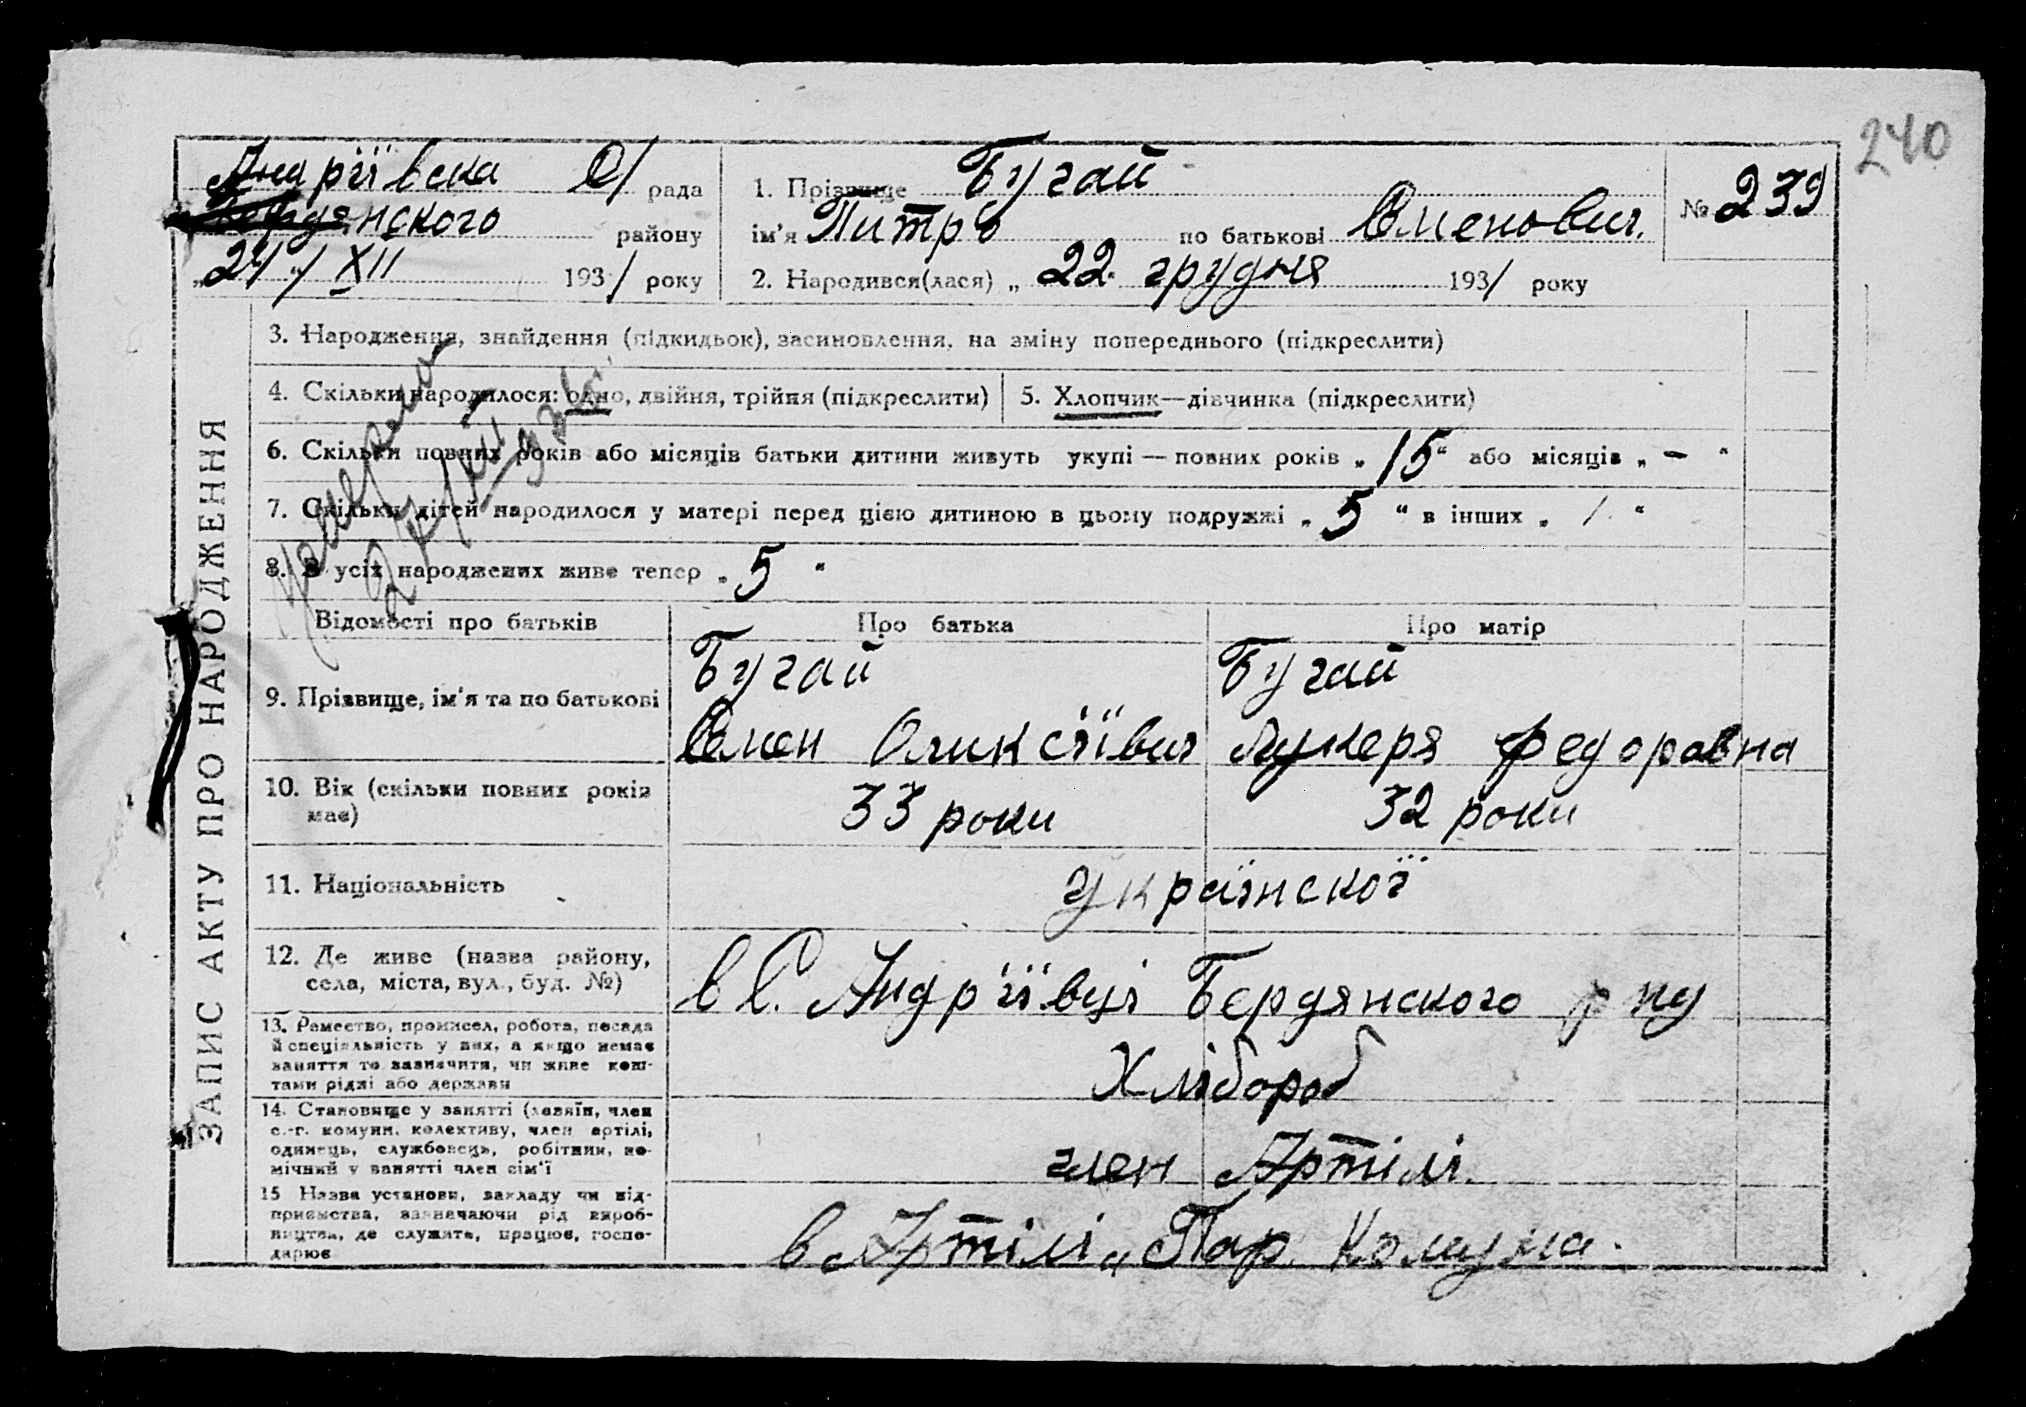 240
Андріївска С/ рада
Бердянского району
„24/ XII 1931 року
1. Прізвище Бугай
ім'я Питро по батькові Оменович.
2. Народився(лася) „ 22. грудня 1931 року
№ 239
ЗАПИС АКТУ ПРО НАРОДЖЕННЯ
3. Народження, знайдення (підкидьок), засиновлення, на зміну попереднього (підкреслити)
4. Скільки народилося: одно, двійня, трійня (підкреслити)
5. Хлопчик—дівчинка (підкреслити)
6. Скільки повних років або місяців батьки дитини живуть укупі — повних років „ 15 “ або місяців „ – “
7. Скільки дітей народилося у матері перед цією дитиною в цьому подружжі „ 5 “ в інших „ / “
8. З усіх народжених живе тепер „ 5 “
Відомості про батьків
Про батька
Про матір
9. Прізвище, ім'я та по батькові
Бугай
Омен Оликсіївич
Бугай
Лукеря Федоровна
10. Вік (скільки повних років
має)
33 роки
32 роки
11. Національність
Украінскоі
12. Де живе (назва району,
села, міста, вул., буд. №)
в С. Андріївці Бердянского р ну
13. Ремество, промисел, робота, посада
й спеціяльність у них, а якщо немає
заняття то зазначити, чи живе кош-
тами рідні або держави
Хлібороб
14. Становище у занятті (хазяїн, член
с.-г. комуни, колективу, член артілі,
одинець, службовець, робітник, по-
мічний у занятті член сім'ї
член Артілі.
15 Назва установи, закладу чи під-
приємства, зазначаючи рід вироб-
ництва, де служить, працює, госпо-
дарює
в Артілі „ Пар. Комуна.